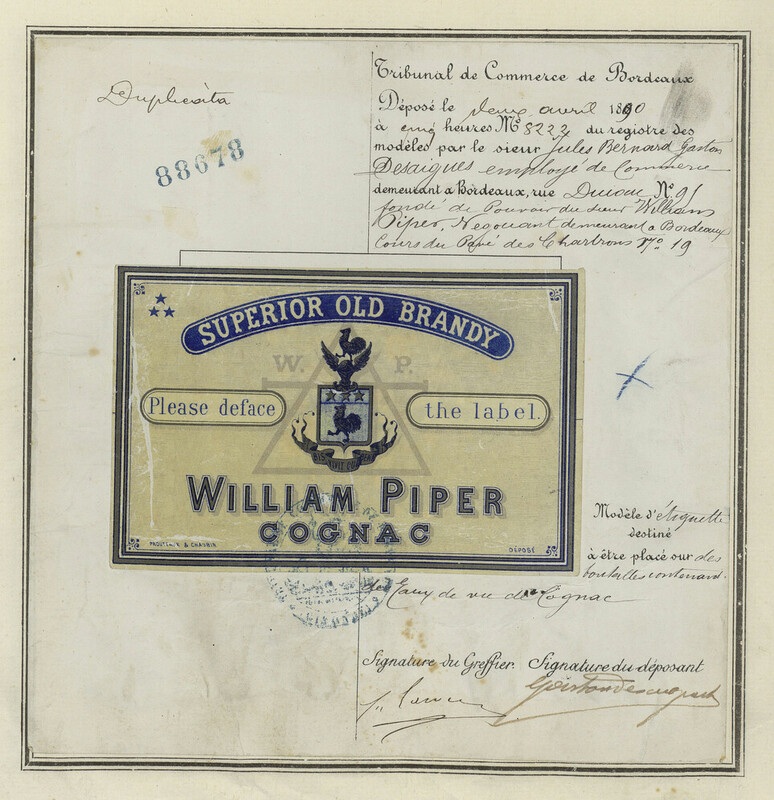 Duplicata
88678
Tribunal de Commerce de Bordeaux
Déposé le deux avril 1890
à cinq heures No 8223 du registre des
modèles par le sieur Jules Bernard Gaston
Desaigues employé de Commerce
demeurant à Bordeaux, rue No 91
fondé de Pouvoir du sieur William
Piper, Négociant demeurant à Bordeaux
Cours du Pavé des Chartrons No 19
SUPERIOR OLD BRANDY
W. P.
Please deface the label.
WILLIAM PIPER
COGNAC
& CHAVRIN
DÉPOSÉ
Modèle d'étiquette
destiné
à être placé sur des
bouteilles contenant
des Eaux de vie de Cognac
Signature du Greffier. Signature du déposant